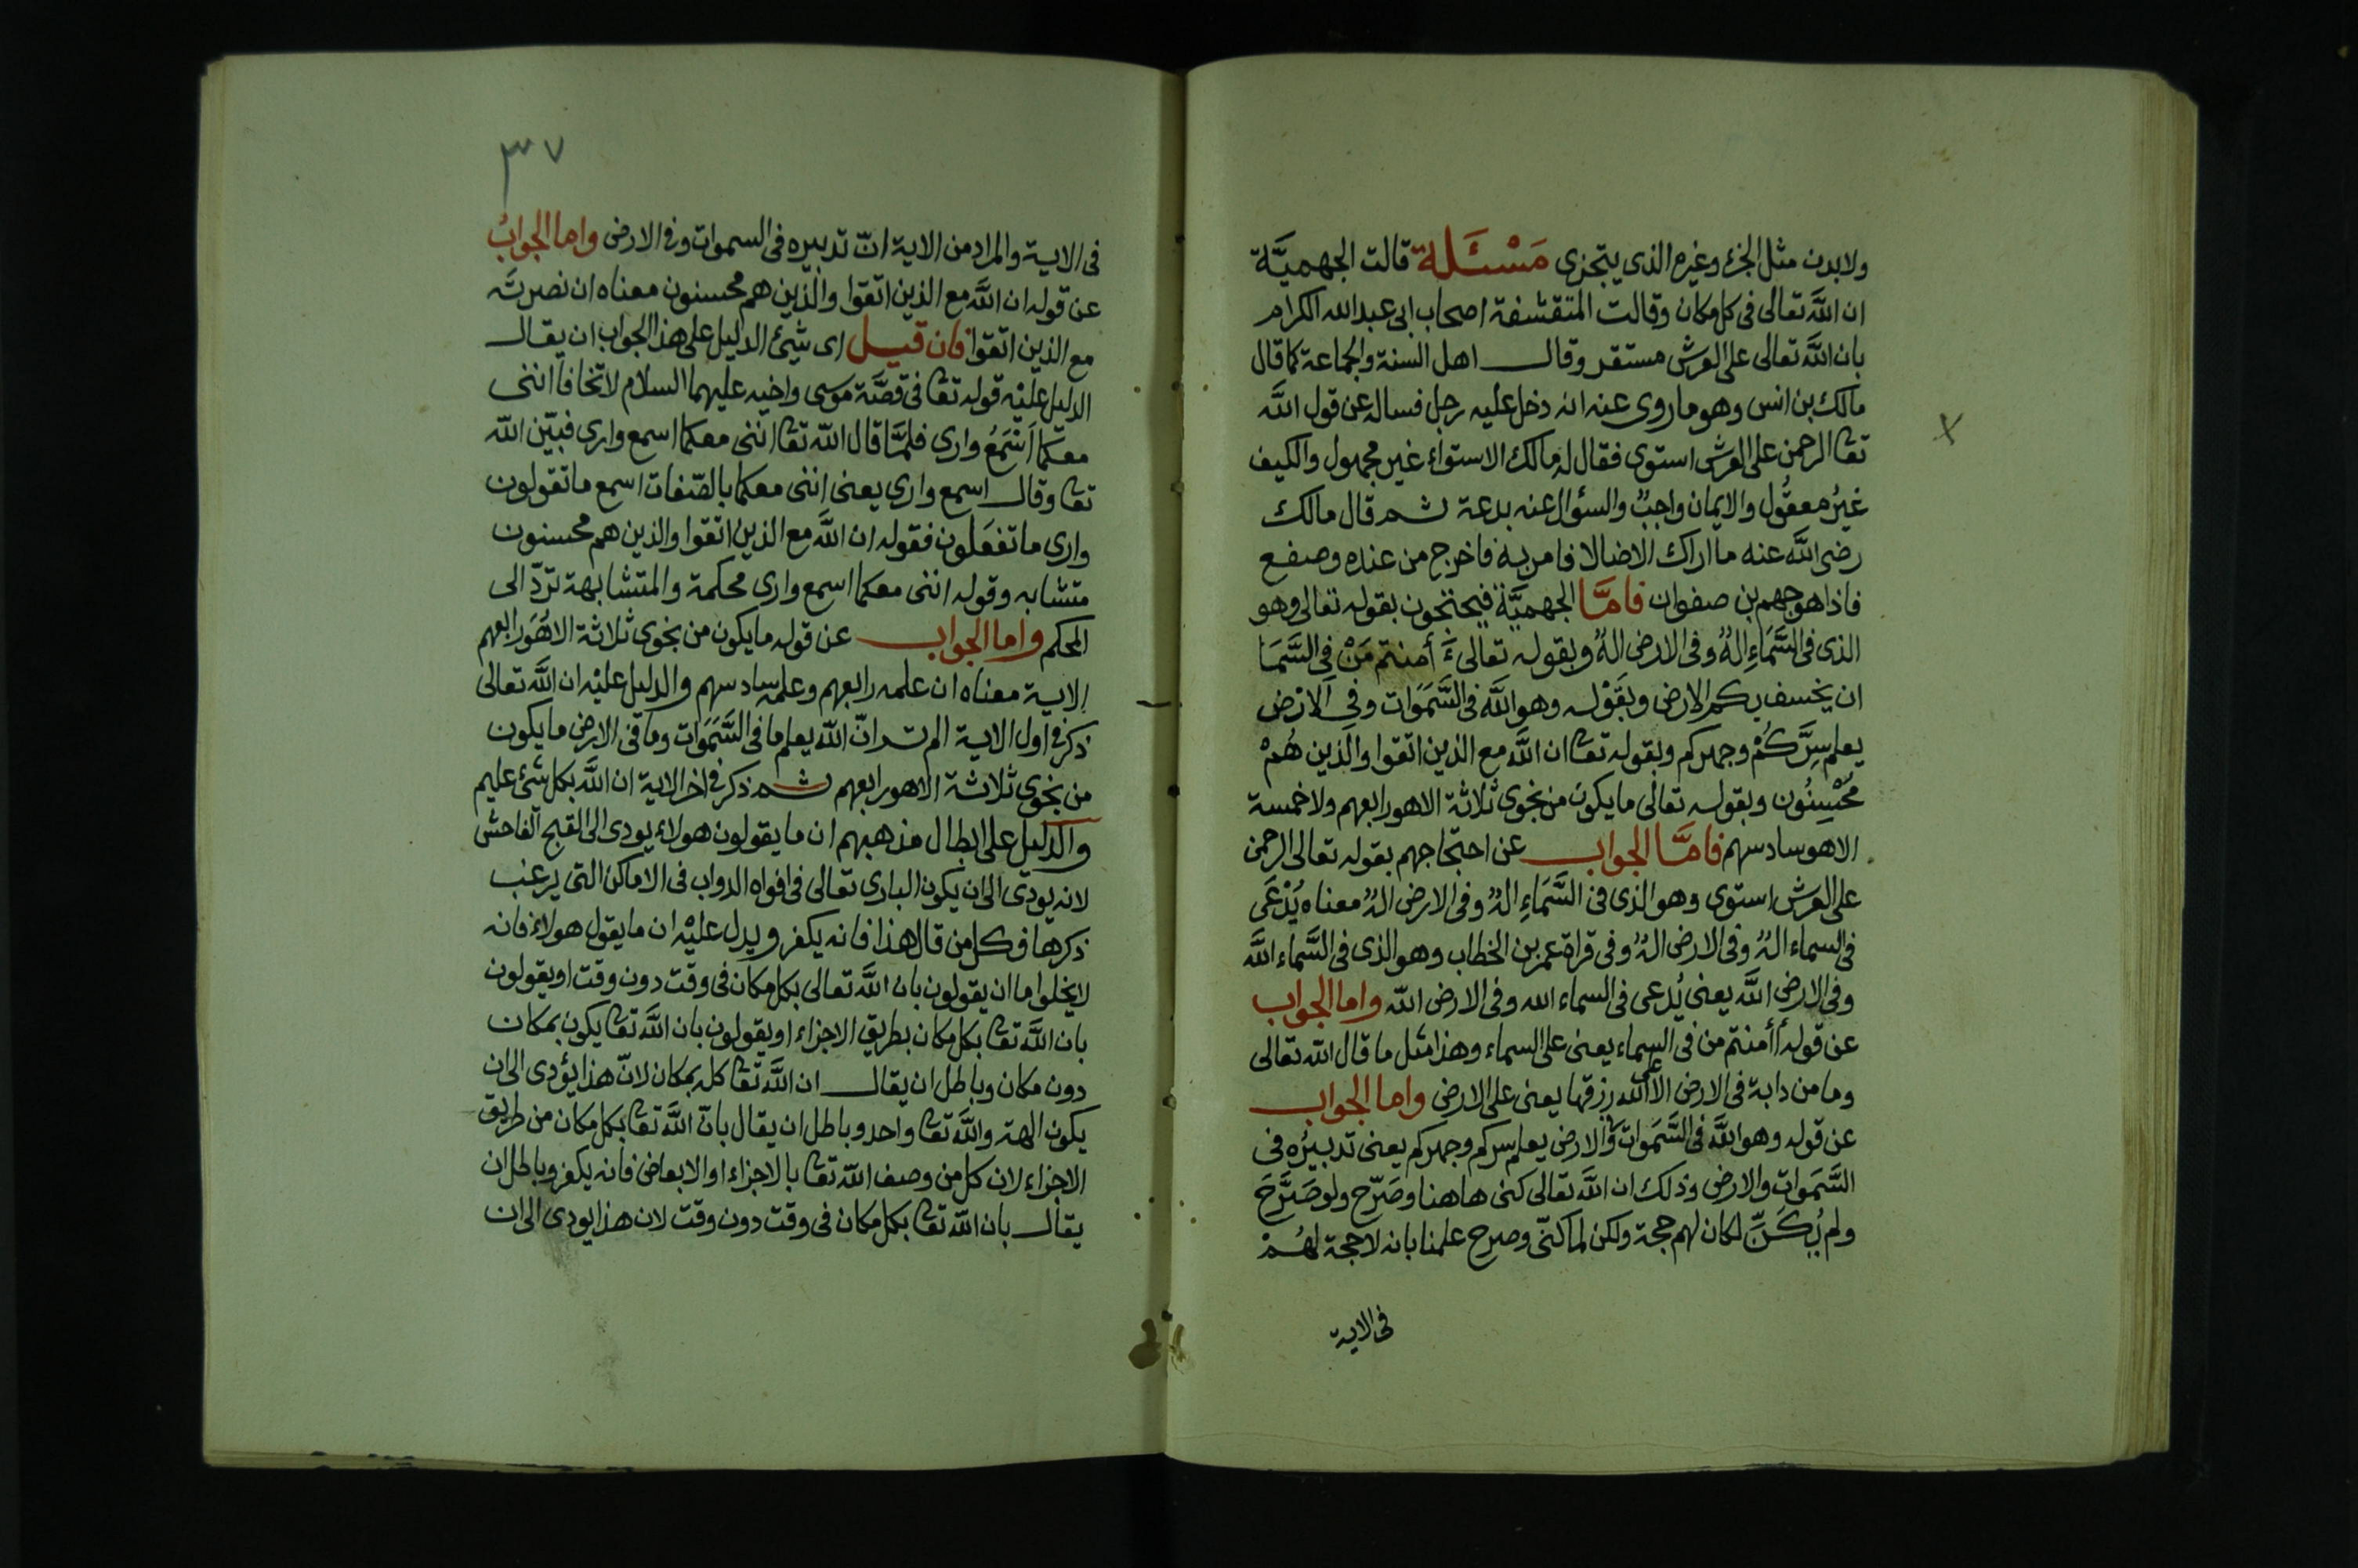 ولابدن مثل الجزء وغيره الذى يتجزى مَسْئَلة قالت الجهميَّة
ان الله تعالى فى كل مكان وقالت المتقشفة اصحاب ابى عبد الله الكرام
بان الله تعالى على العرش مستقر وقال اهل السنة والجماعة كما قال
مالك بن انس وهو ما روى عنه انه دخل عليه رجل فساله عن قول الله
تعا الرحمن على العرش استوى فقال له مالك الاستواء غير مجهول والكيف
غيرُ معقُول والايمان واجبٌ والسؤال عنه بدعة ثم قال مالك
رضى الله عنه ما اراك الا ضالا فامر به فاخرج من عنده وصفع
فاذا هو جهم بن صفوان فامَّا الجهميَّة فيحتجون بقوله تعالى وهو
الذى فى السَّمَاءِ الهٌ وفى الارض الهٌ وبقوله تعالى ءَأمنتم مَنْ فى السَّمَا
ان يخسف بكم الارض وبقَوْله وهو الله فى السَّمَوَات وفى الارْض
يعلم سِرَّكُمْ وجهركم وبقوله تعا ان الله مع الذين اتقوا والذين هُمْ
مُحْسِنُون وبقوله تعالى ما يكون من نجوى ثلاثة الا هو رابعهم ولا خمسة
الا هو سادسهم فامَّا الجواب عن احتجاجهم بقوله تعالى الرحمن
على العرش استوى وهو الذى فى السَّمَاءِ الهٌ وفى الارض الهٌ معناه يُدْعَى
فى السماء الهٌ وفى الارض الهٌ وفى قراة عمر بن الخطاب وهو الذى فى السَّماء الله
وفى الارض الله يعنى يُدعى فى السماء الله وفى الارض الله واما الجواب
عن قوله أأمنتم من فى السماء يعنى على السماء وهذا مثل ما قال الله تعالى
وما من دابة فى الارض الا على الله رزقها يعنى على الارض واما الجواب
عن قوله وهو الله فى السَّمَوات وفى الارض يعلم سركم وجهركم يعنى تدبيرُه فى
السَّمَوات والارض وذلك ان الله تعالى كنى هاهنا وصَرّح ولو صَرَّحَ
ولم يُكَنِّ لكان لهم حجة ولكن لما كنّى وصرح علمنا بانه لا حجة لهُمْ
فى الاية
٣٧
فى الاية والمراد من الاية انّ تدبيره فى السموات وفى الارض واما الجوابُ
عن قوله ان الله مع الذين اتقوا والذين هم محسنون معناه ان نصرته
مع الذين اتقوا فان قيل اى شيئ الدليل على هذا الجواب ان يقال
الدليل عليْه قوله تعا فى قصَّة موسى واخيه عليهما السلام لا تخافا اننى
معكما اَسْمَعُ وارى فلمَّا قال الله تعا اننى معكما اسمع وارى فبيّن الله
تعا وقال اسمع وارى يعنى اننى معكما بالصّفات اسمع ما تقولون
وارى ما تفعَلون فقوله ان الله مع الذين اتقوا والذين هم محسنون
متشابه وقوله اننى معكما اسمع وارى محكمة والمتشابهة تردّ الى
المحكم واما الجواب عن قوله ما يكون من نجوى ثلاثة الا هُوَ رابعهم
الاية معناه ان علمه رابعهم وعلمه سادسهم والدليل عليْه ان الله تعالى
ذكر فى اول الاية الم تر انّ الله يعلم ما فى السَّمَوَات وما فى الارض ما يكون
من نجوى ثلاثة الا هو رابعهم ثم ذكر فى اخر الاية ان الله بكل شئ عليم
والدليل على ابطال مذهبهم ان ما يقولون هولاء يودى الى القبح الفاحش
لانه يودى الى ان يكون البارى تعالى فى افواه الدواب فى الاماكن التى يرغب
ذكرها فكل من قال هذا فانه يكفر ويدل عليْه ان ما يقول هولاء فانه
لا يخلوا ما ان يقولون بان الله تعالى بكل مكان فى وقت دون وقت او يقولون
بان الله تعا بكل مكان بطريق الاجزاء او يقولون بان الله تعا يكون بمكان
دون مكان وباطل ان يقال ان الله تعا كله بمكان لانّ هذا يؤدى الى ان
يكون الهة والله تعا واحد وباطل ان يقال بان الله تعا بكل مكان من طريق
الاجزاء لان كل من وصف الله تعا بالاجزاء او الابعاض فانه يكفر وباطل ان
يقال بان الله تعا بكل مكان فى وقت دون وقت لان هذا يودى الى ان